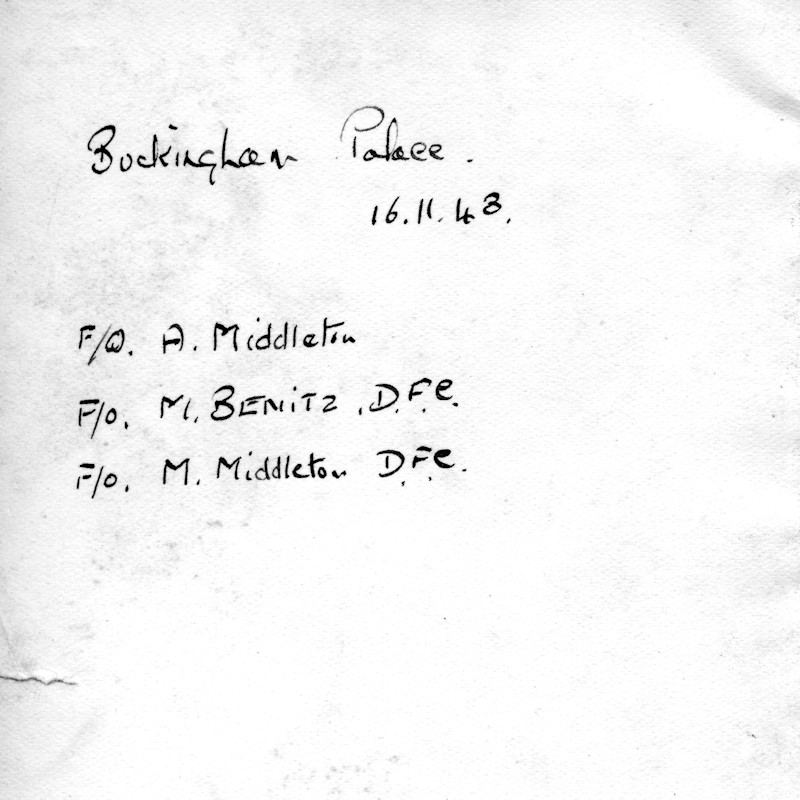 Buckingham Palace.
16.11.43.
F/O. A. Middleton
F/O. M. BENITZ. D.F.C.
F/O. M. Middleton D.F.C.